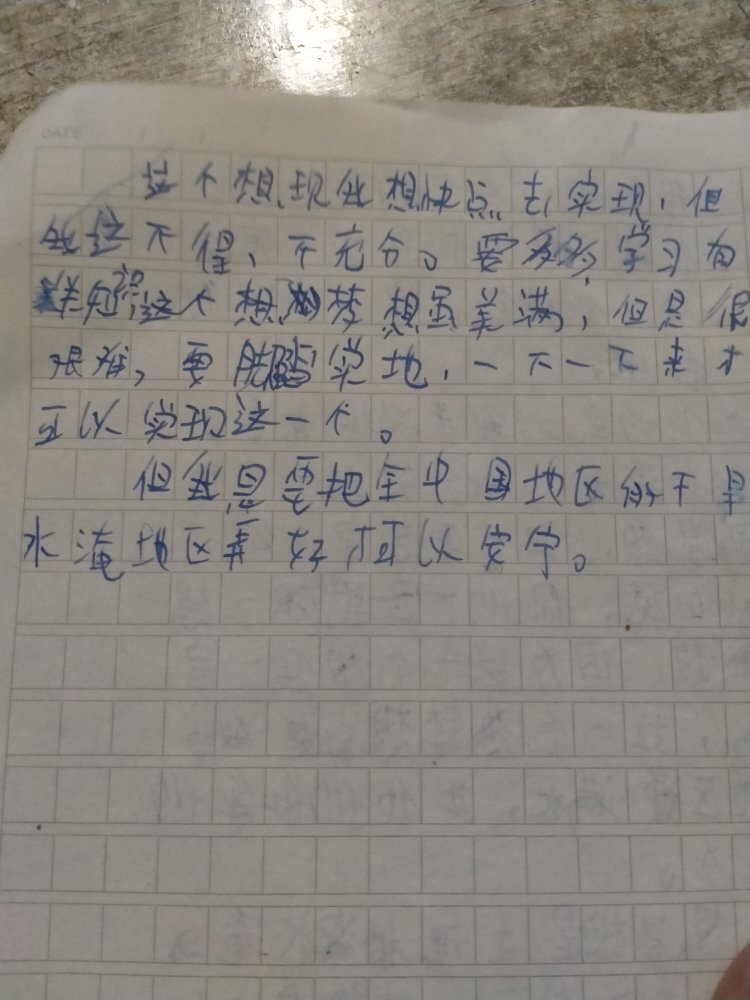 DATE
这个想,现我想快点去实现,但
我这不得、不充分。要多多学习有
关知识,这个想梦想虽美满,但是很
艰难,要脚踏实地,一下一下来才
可以实现这一个。
但我是要把全中国地区的干旱
水淹地区弄好,可以安宁。